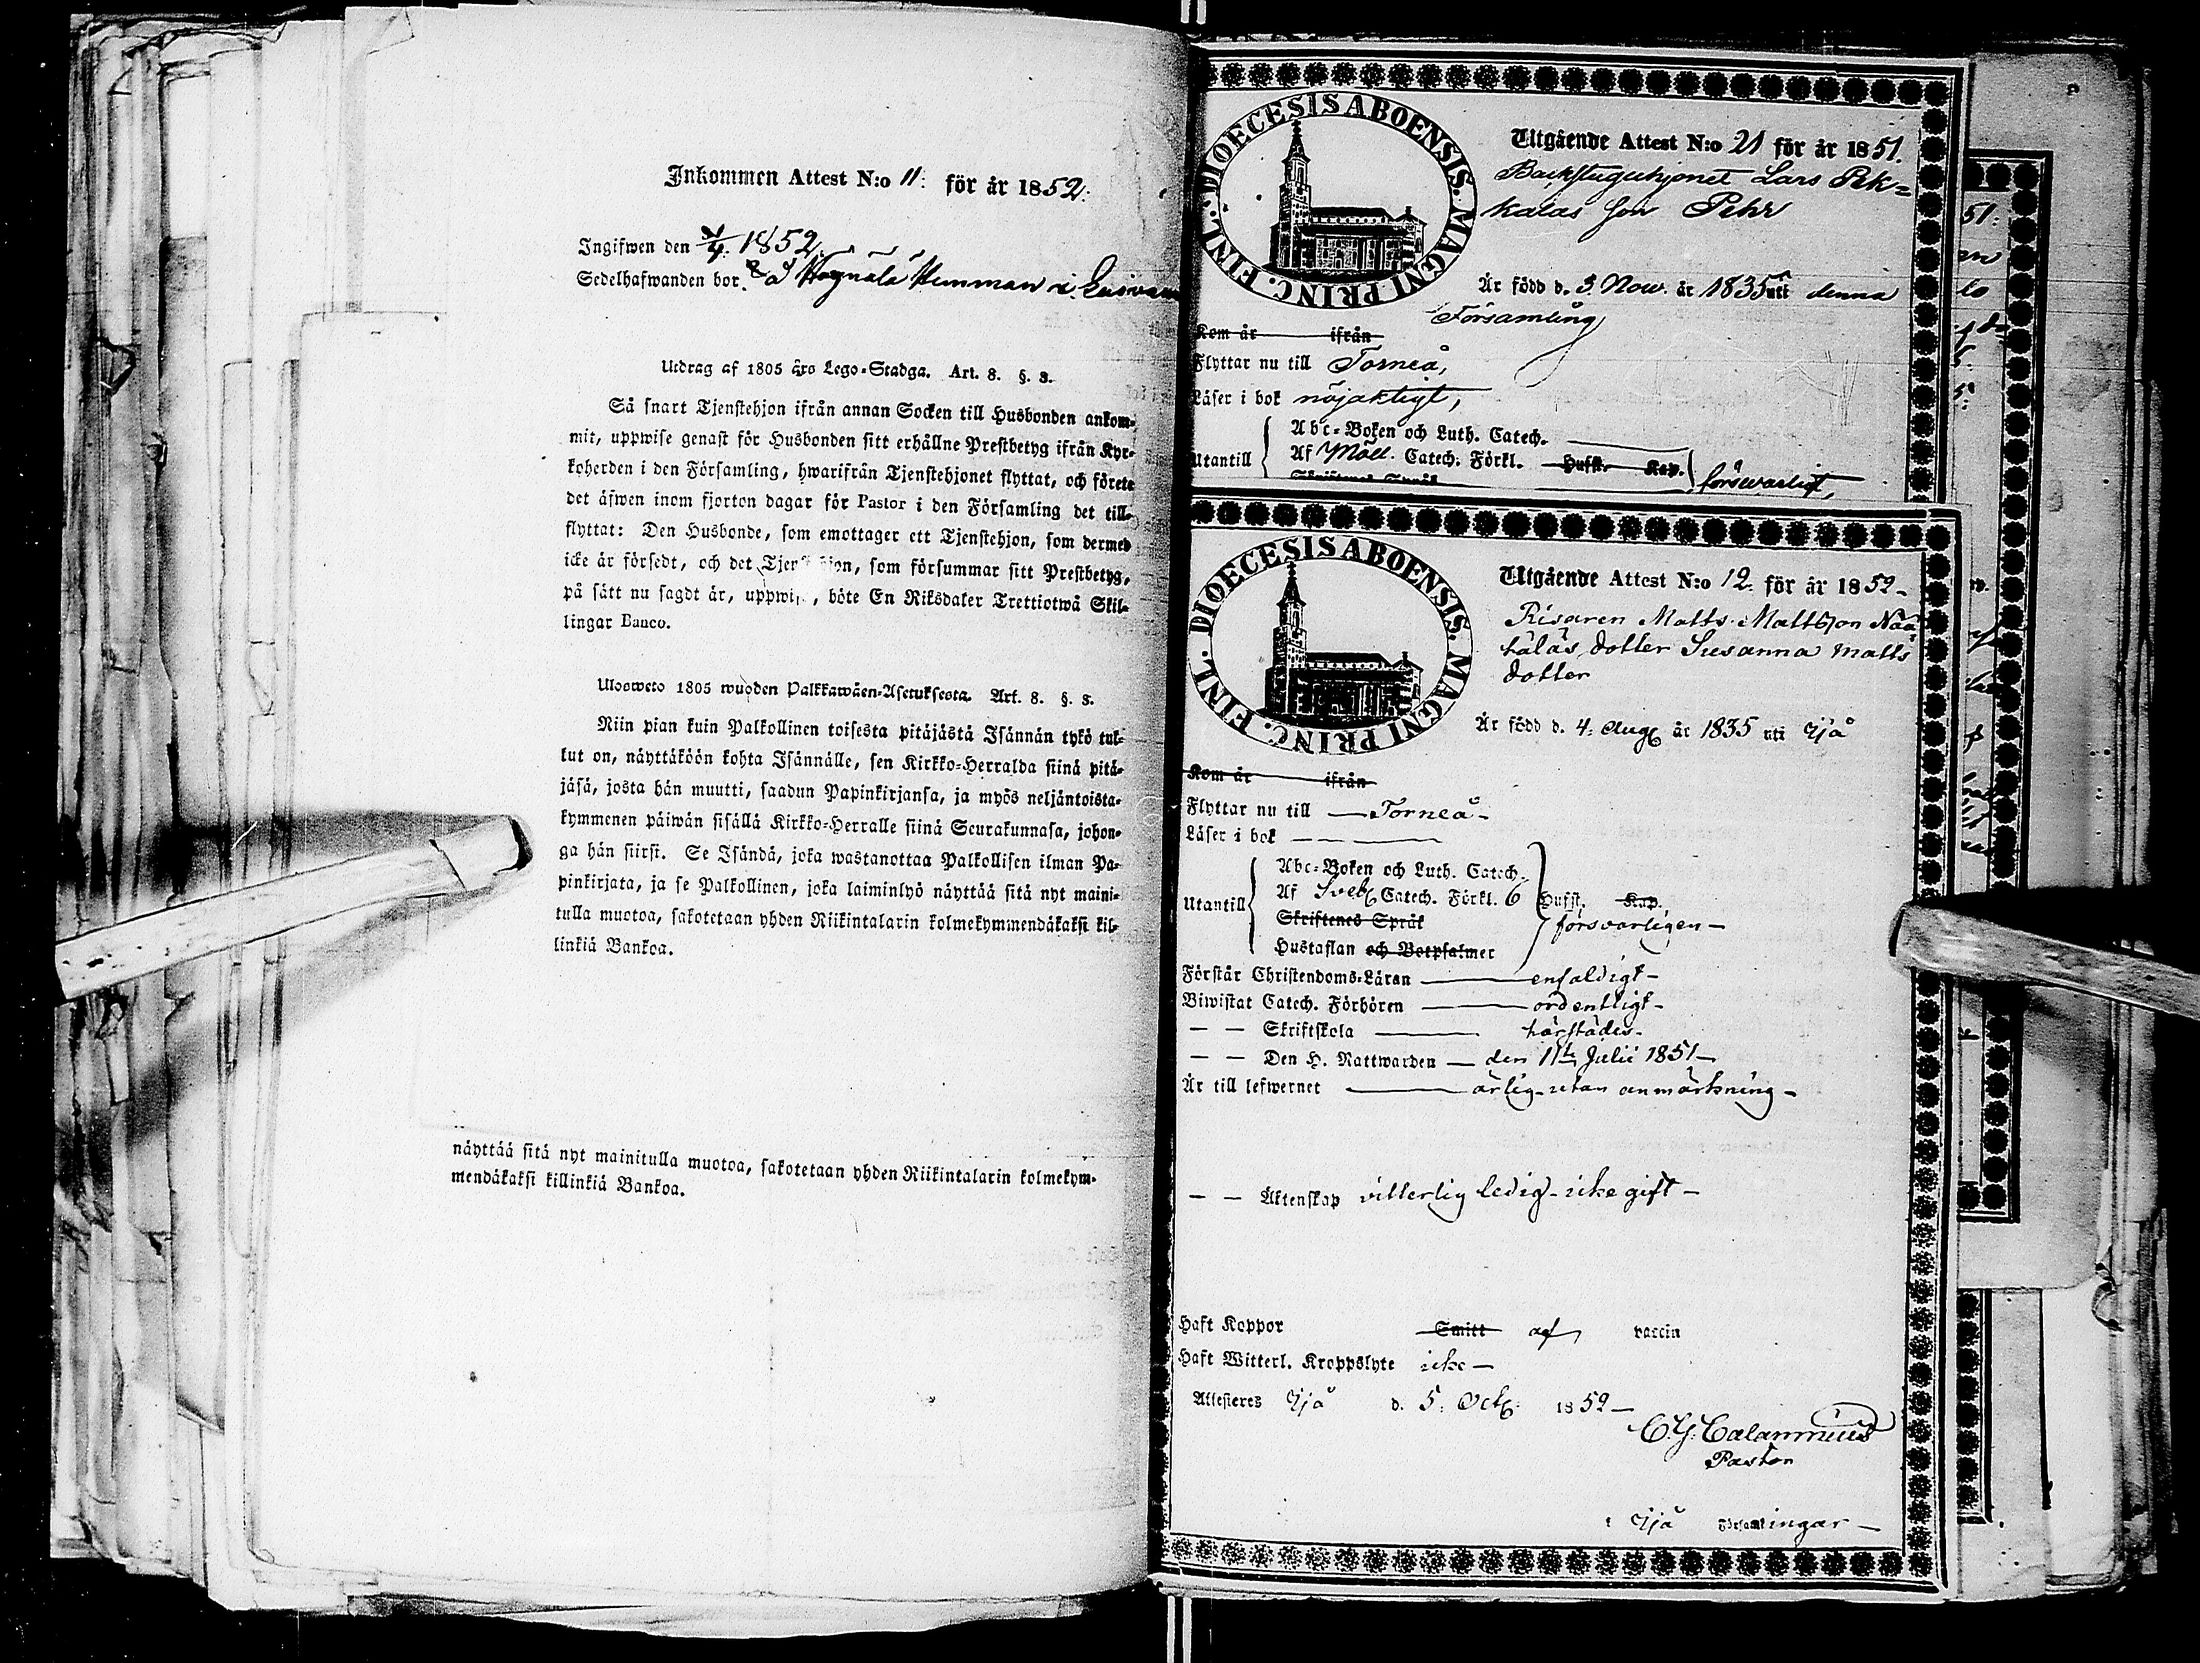 Inkommen Attest N:o 11: för år 1852.
Ingifwen den 7/4 1852.
Sedelhafwanden bor. å Hemman i
Utdrag af 1805 års Lego-Stadga. Art. 8. §. 3.
Så snart Tjenstehjon ifrån annan Socken till Husbonden ankom-
mit, uppwise genast för Husbonden sitt erhållne Prestbetyg ifrån Kyr-
koherden i den Församling, hwarifrån Tjenstehjonet flyttat, och förete
det äfwen inom fjorton dagar för Pastor i den Församling det till-
flyttat: Den Husbonde, som emottager ett Tjenstehjon, som dermed
icke är försedt, och det Tjenstehjon, som försummar sitt Prestbetyg,
på sätt nu sagdt är, uppwisa, böte En Riksdaler Trettiotwå Skil-
lingar Banco.
Ulosweto 1805 wuoden Palkkawäen-Asetuksesta. Art. 8. §. 3.
Niin pian kuin Palkollinen toisesta pitäjästä Isännän tykö tul-
lut on, näyttäköön kohta Isännälle, sen Kirkko-Herralda siinä pitä-
jäsä, josta hän muutti, saadun Papinkirjansa, ja myös neljäntoista-
kymmenen päiwän sisällä Kirkko-Herralle siinä Seurakunnasa, johon-
ga hän siirsi. Se Isändä, joka wastanottaa Palkollisen ilman Pa-
pinkirjata, ja se Palkollinen, joka laiminlyö näyttää sitä nyt maini-
tulla muotoa, sakotetaan yhden Riikintalarin kolmekymmendäkaksi kil-
linkiä Bankoa.
näyttää sitä nyt mainitulla muotoa, sakotetaan yhden Riikintalarin kolmekym-
mendäkaksi killinkiä Bankoa.
DIOECESIS ABOENSIS. MAGNI PRINC. FINL.
Utgående Attest N:o 21 för år 1851.
Backstuguhjonet Lars Pek-
kalas son Pehr
Är född d. 3. Nov. år 1835 uti denna
Församling
Kom år ifrån
Flyttar nu till Torneå,
Läser i bok nöjaktigt,
Abc-Boken och Luth. Catech.
Utantill Af Möll. Catech. Förkl. Husst. Kap.
försvarligt,
DIOECESIS ABOENSIS. MAGNI PRINC. FINL.
Utgående Attest N:o 12. för år 1852-
Risaren Matts Mattsson Nää
täläs dotter Susanna Matts
dotter
Är född d. 4. Aug. år 1835 uti Ijå
Kom år ifrån
Flyttar nu till - Torneå -
Läser i bok
Abc-Boken och Luth. Catech.
Utantill Af Sveb. Catech. Förkl. 6 Hufst. Kap.
Skriftenes Språk försvarligen -
Hustaflan och Botpsalmer
Förstår Christendoms-Läran enfaldigt -
Biwistat Catech. Förhören ordentligt -
- - Skriftskola härstädes -
- - Den H. Nattwarden - den 11te Julii 1851 -
Är till lefwernet ärlig utan anmärkning -
- - Äktenskap vitterlig ledig - icke gift -
Haft Koppor Smitt af vaccin
Haft Witterl. Kroppslyte icke -
Attesteres Ijå d. 5. Oct. 1852 -
C. G. Calamnius
Pastor
i Ijå Församlingar -